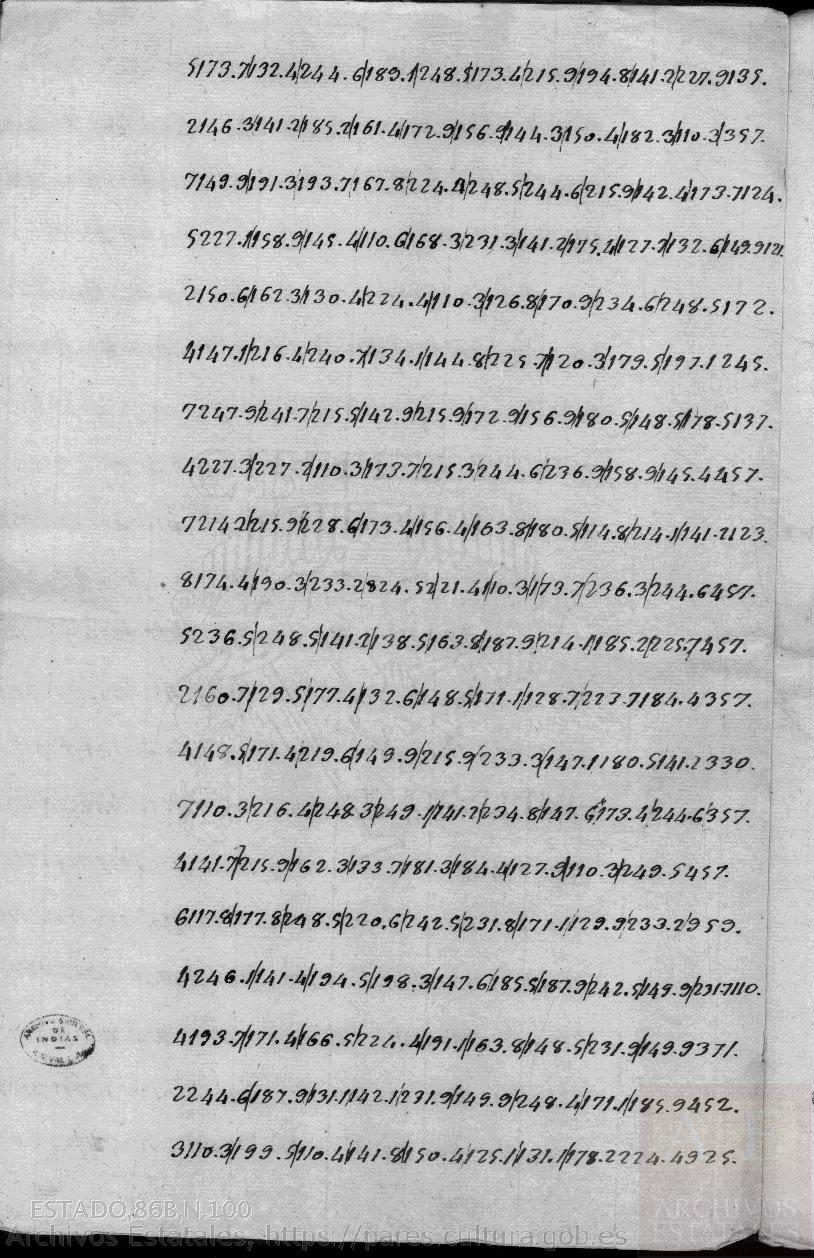 5173.7/132.4/244.6/189.1/248.5/173.4/215.9/194.8/141.2/227.9135.
2146.3/141.2/185.2/161.4/172.9/156.9/144.3/150.4/182.3/110.3/357.
7149.9/191.3/193.7167.8/224.4/248.5/244.6/215.9/142.4/173.7124.
5227.1/158.9/145.4/110.6/168.3/231.3/141.2/175.4/127.7/132.6/149.9121.
2150.6/162.3/130.4/224.4/110.3/126.8/170.9/234.6/248.5172.
4147.1/216.4/240.7/134.1/144.8/225.7/120.3/179.5/197.1245.
7247.9/241.7/215.5/142.9/215.9/172.9/156.9/180.5/148.5/178.5137.
4227.3/227.2/110.3/173.7/215.3/244.6/236.9/158.9/145.4457.
7214.2/215.9/228.6/173.4/156.4/163.8/180.5/114.8/214.1/141.2123.
8174.4/190.3/233.2824.5221.4/110.3/173.7/236.3/244.6457.
5236.5/248.5/141.2/138.5163.8/187.9/214.1/185.2/225.7457.
2160.7/129.5/177.4/132.6/148.5/171.1/128.7/227.7184.4357.
4148.5/171.4/219.6/149.9/215.9/233.3/147.1180.5141.2330.
7110.3/216.4/248.3/249.1/141.2/234.8/147.6/173.4/244.6357.
4141.7/215.9/162.3/133.7/181.3/184.4/127.9/110.3/249.5457.
6117.8/177.8/248.5/220.6/242.5/231.8/171.1/129.9/233.2959.
4246.1/141.4/194.5/198.3/147.6/185.5/187.9/242.5/149.9/231.7110.
4193.7/171.4/166.5/224.4/191.1/163.8/148.5/231.9/149.9371.
2244.6/187.9/131.1142.1/231.9/149.9/248.4/171.1/185.9452.
3110.3/199.5/110.4/141.8/150.4/125.1/131.1/178.2224.4925.
INDIAS
ESTADO,86B,N.100
Archivos Estatales, https://pares.cultura.gob.es
ARCHIVOS
ESTATALES